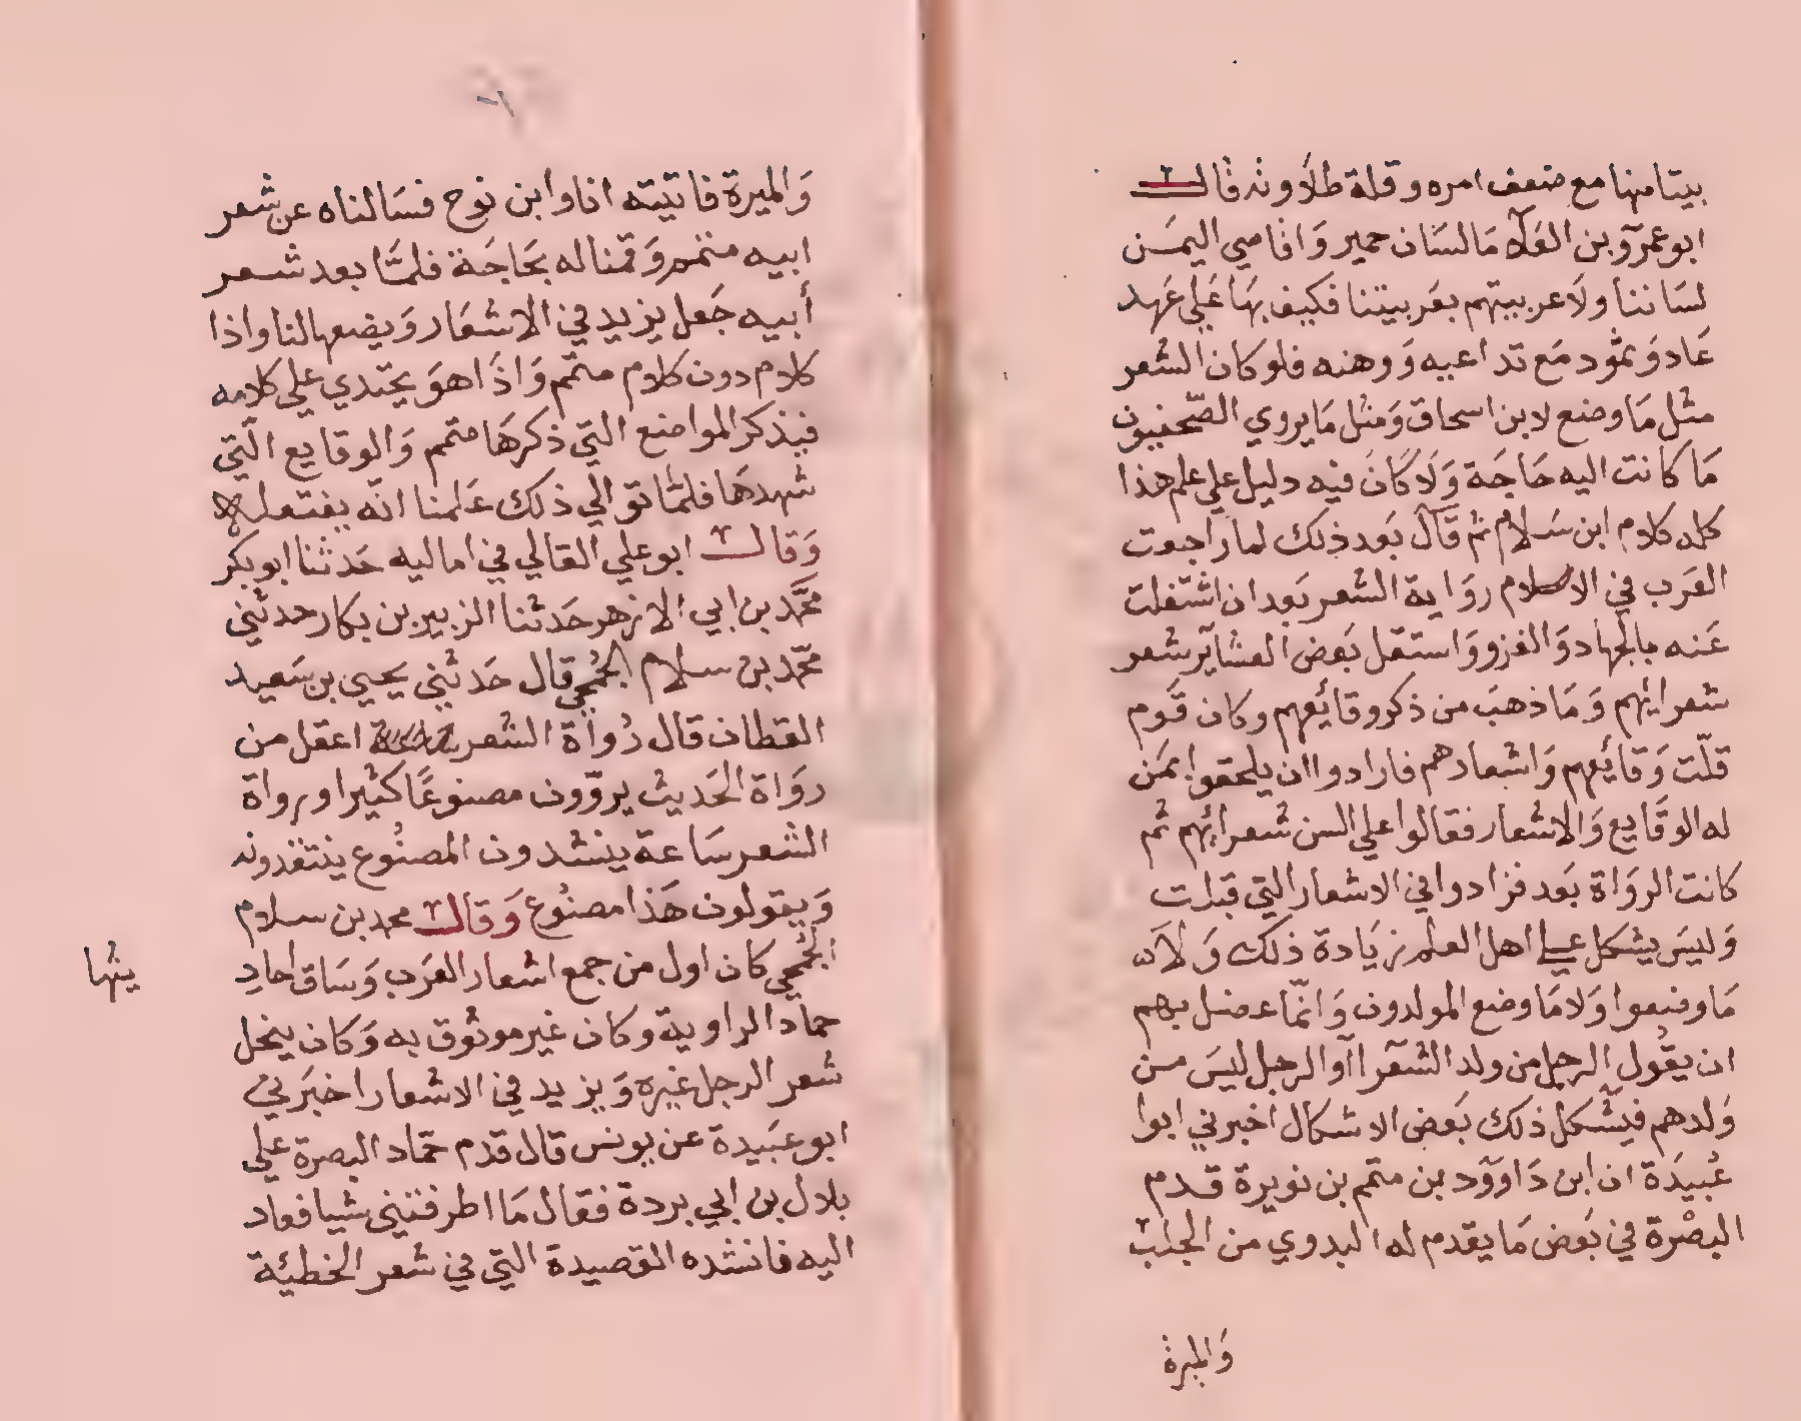 بيتا منها مع ضعف امره وقلة طلاوته قال
ابو عمرو بن العلآ مَا لسَان حمير وَاقاصي اليمَن
لسَاننا ولَا عربيتهم بعَربيتنا فكيف بهَا عَلي عَهد
عَاد وَثمود مَع تداعيه وَوهنه فلو كان الشعر
مثل مَا وضع لابن اسحاق وَمثل مَا يروي الصّحفيون
مَا كانت اليه حَاجَة وَلَا كَانَ فيه دليل علي علم هذا
كله كلام ابن سَلام ثم قَالَ بَعد ذلك لما راجعت
العَرب في الاسلام روَاية الشعر بَعد ان اشتغلت
عَنه بالجهاد وَالغزو وَاستقل بَعض العشآير شعر
شعرايهم وَمَا ذهبَ من ذكر وقائعهم وكان قَوم
قلّت وَقائعهم وَاشعارهم فارادوا ان يلحقوا بمَن
له الوقَايع وَالاشعار فقالوا علي السن شعرائهم ثم
كانت الروَاة بَعد فزادوا في الاشعار التي قيلت
وَليسَ يشكل علي اهل العلم زيَادة ذلك وَلا
مَا وضعوا وَلا مَا وضع المولدون وَانّما عضل بهم
ان يقُول الرجل من ولد الشعرآ او الرجل ليسَ من
وَلدهم فيشكل ذلك بَعض الاشكال اخبرني ابوا
عُبيدَة ان ابن دَاووّد بن متمم بن نويرة قدم
البصْرة في بَعض مَا يقدم له البدوي من الجلب
وَالميرة
وَالميرة فاتيته انا وابن نوح فسَالناه عن شعر
ابيه متمم وَقمنا له بحَاجَة فلمّا بعد شعر
أبيه جَعل يزيد في الاشعَار وَيضعها لنا واذا
كلام دون كلام متمم وَاذَا هوَ يحتدي علي كلامه
فيذكر المواضع التي ذكرهَا متمم وَالوقايع الّتي
شهدهَا فلمّا توالي ذلك عَلمنا انّه يفتعله
وَقال ابو علي القالي في اماليه حَدثنا ابو بكر
محَمَّد بن ابي الازهر حَدثنا الزبير بن بكار حدثني
محمّد بن سلام الجُمحي قال حَدثني يحيي بن سَعيد
القطان قال رُواة الشعر اعقل من
روَاة الحَديث يروّون مصنوعًا كثيرا ورواة
الشعر سَاعة ينشدون المصنُوع ينتقدونه
وَيقولون هَذا مصنُوع وَقال محمد بن سلام
الجُمحي كان اول من جمع اشعار العَرب وَسَاق احاد
يثها
حماد الراوية وكان غير موثوق به وَكان ينحل
شعر الرجل غيره وَيزيد في الاشعار اخبَرني
ابو عبَيدة عن يونس قال قدم حمّاد البصرة علي
بلال بن ابي بردة فقال مَا اطرفتني شيا فعاد
اليه فانشده القصيدة التي في شعر الخطيئة